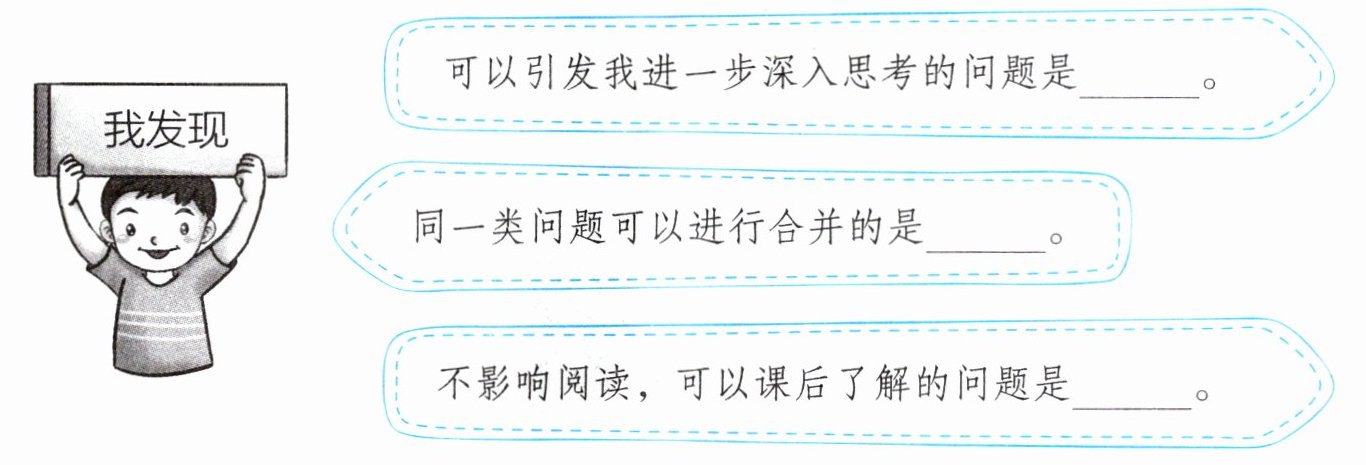 我发现
可以引发我进一步深入思考的问题是______。
同一类问题可以进行合并的是______。
不影响阅读，可以课后了解的问题是______。